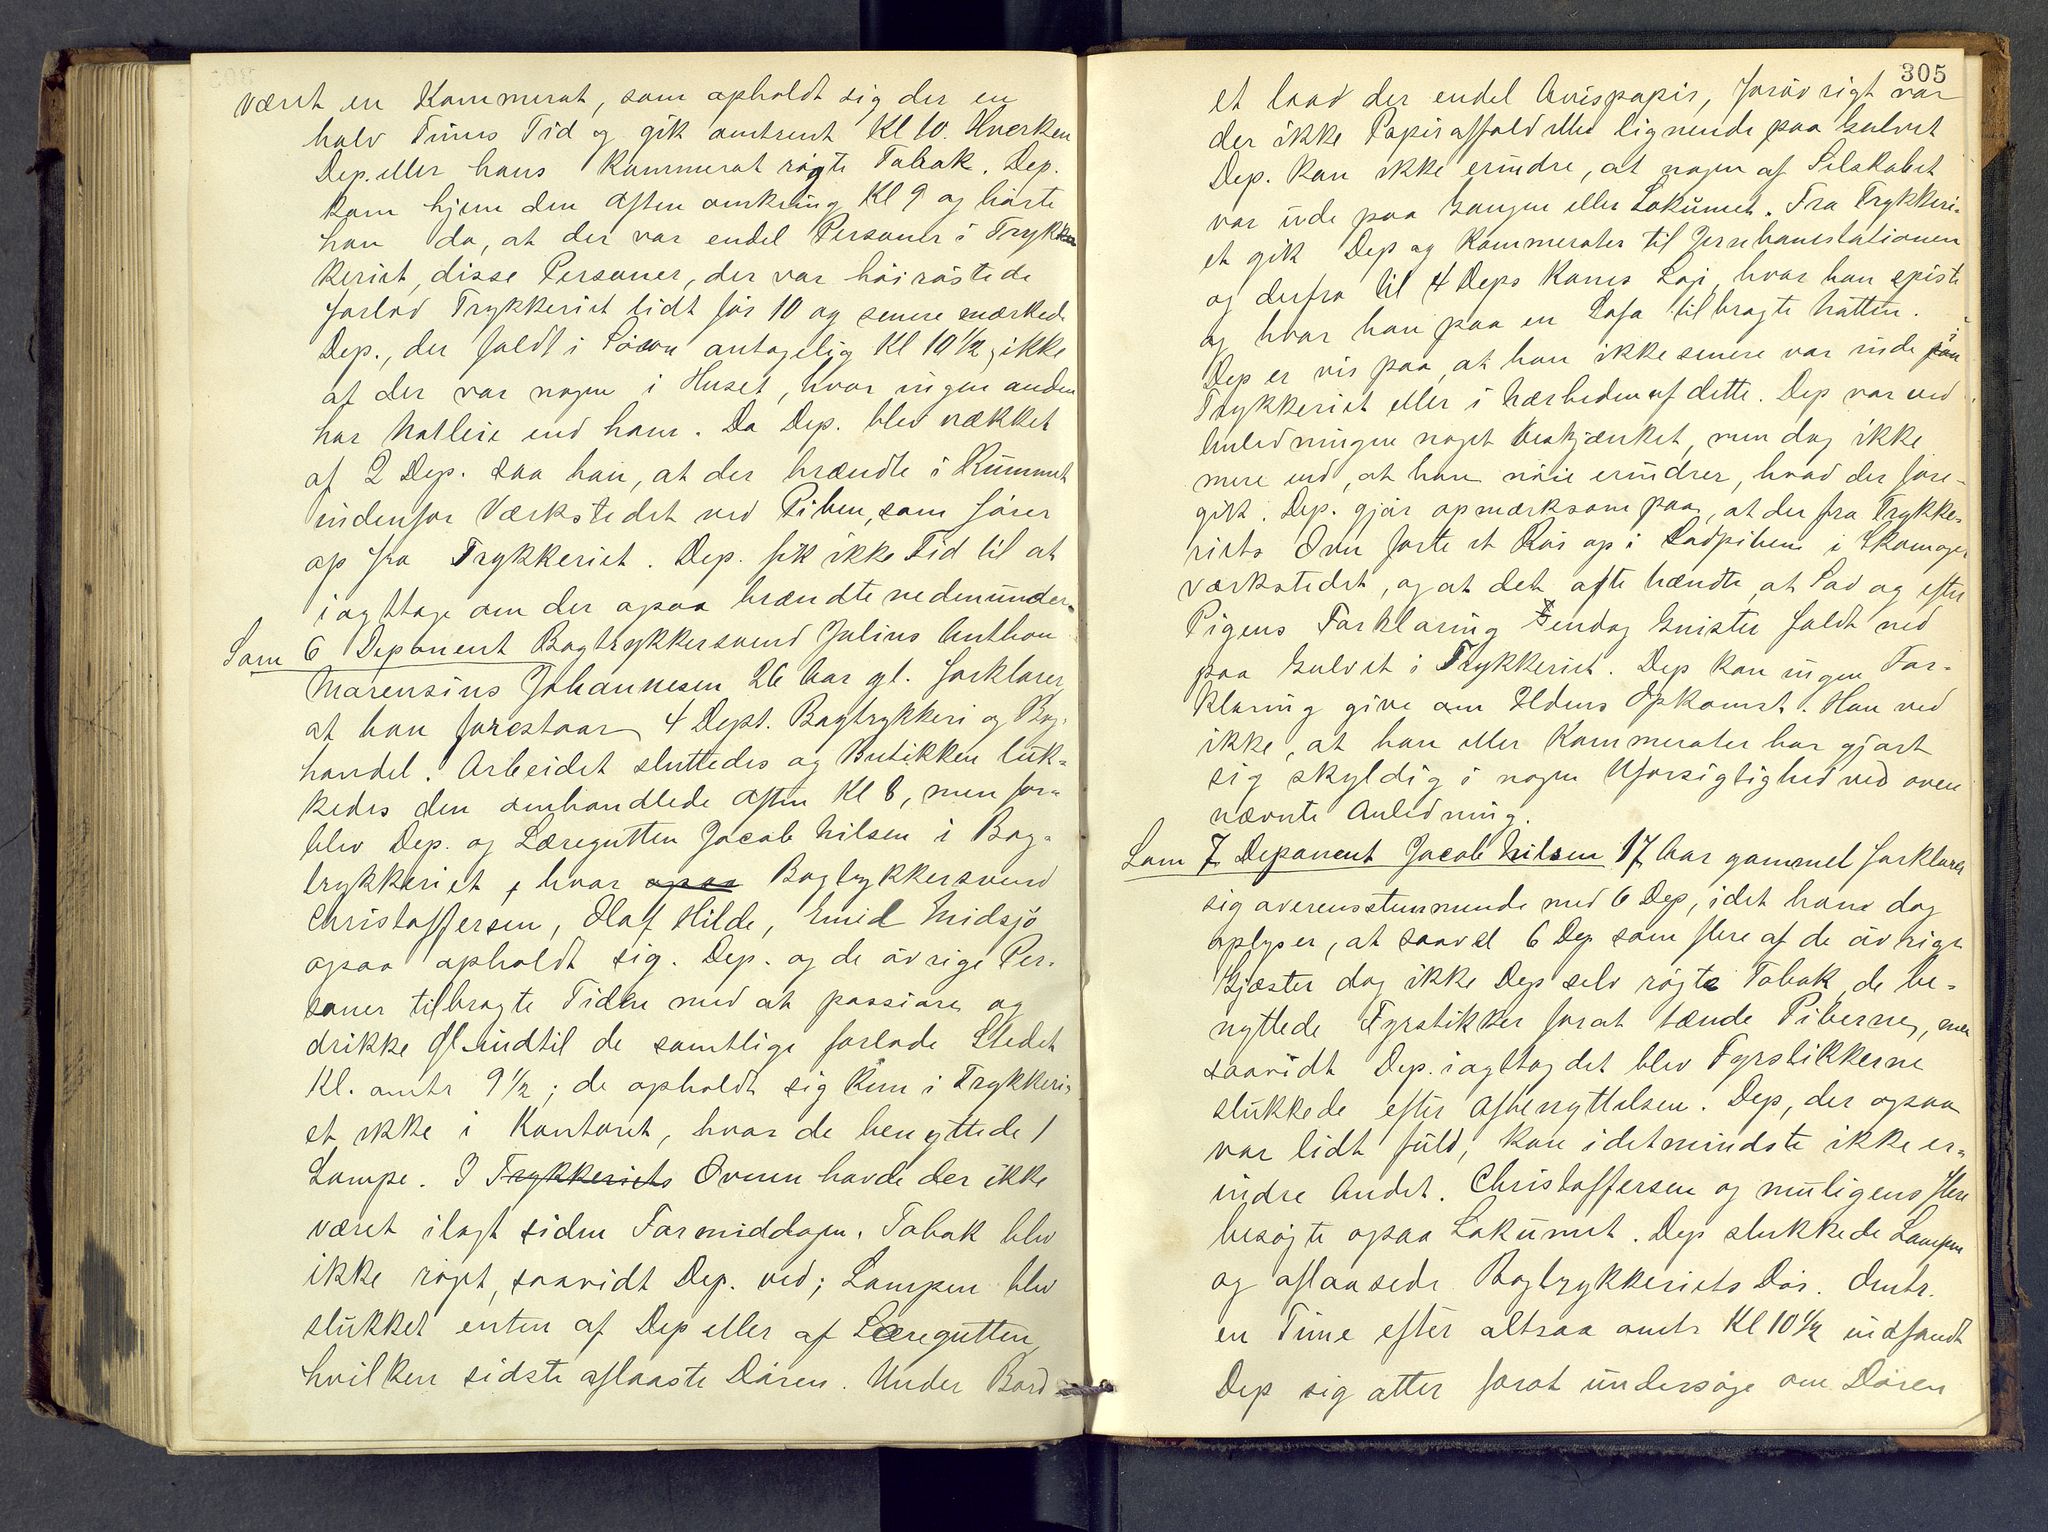 været en Kammerat, som opholdt sig der en
halv Times Tid og gik omtrent Kl 10. Hverken
Dep. eller hans Kammerat røgte Tobak. Dep.
kom hjem den Aften omkring Kl 9 og hørte
han da, at der var endel Personer i Tryk
keriet, disse Personer, der var høirøstede
forlod Trykkeriet lidt før 10 og senere mærkede
Dep., der faldt i Søvn antagelig Kl 10 1/2, ikke
at der var nogen i Huset, hvor ingen anden
har Natleie end ham. Da Dep. blev vækket
af 2 Dep. saa han, at der brændte i Rummet
indenfor Værkstedet ved Piben, som fører
op fra Trykkeriet. Dep. fik ikke Tid til at
iagttage om der ogsaa brændte nedenunder.
Som 6 Deponent Bogtrykkersvend Julius Anthon
Marensius Johannesen 26 Aar gl. forklarer,
at han forestaar 4 Dept. Bogtrykkeri og Bog-
handel. Arbeidet sluttedes og Butikken luk-
kedes den omhandlede Aften Kl 8, men for-
blev Dep. og Læregutten Jacob Nilsen i Bog-
trykkeriet, hvor ogsaa Bogtrykkersvend
Christoffersen, Olaf Hilde, Emil Midsjø
ogsaa opholdt sig. Dep. og de øvrige Per-
soner tilbragte Tiden med at passiare og
drikke Øl indtil de samtlige forlode Stedet
Kl. omtr 9 1/2; de opholdt sig kun i Trykkeri-
et ikke i Kontoret, hvor de benyttede 1
Lampe. I Trykkeriets Ovnen havde der ikke
været ilagt siden Formiddagen. Tobak blev
ikke røget, saavidt Dep. ved; Lampen blev
slukket enten af Dep eller af Læregutten,
hvilken sidste aflaaste Døren. Under Bord
305
et laad der endel Avispapir, forøvrigt var
der ikke Papiraffald eller lignende paa Gulvet
Dep. kan ikke erindre, at nogen af Selskabet
var ude paa Gangen eller Lokumet. Fra Trykkeri-
et gik Dep og Kammerater til Jernbanestationen
og derfra til 4 Deps Kones Loji, hvor han spiste
og hvor han paa en Sofa tilbragte Natten.
Dep er vis paa, at han ikke senere var inde i paa
Trykkeriet eller i Nærheden af dette. Dep var ved
Anledningen noget beskjænket, men dog ikke
mere end, at han nøie erindrer, hvad der fore-
gik. Dep. gjør opmærksom paa, at der fra Trykke-
riets Ovn førte et Rør op i Sodpiben i Skomager
værkstedet, og at det ofte hændte, at Sod og efter
Pigens Forklaring endog Gnister faldt ned
paa Gulvet i Trykkeriet. Dep kan ingen For-
klaring give om Ildens Opkomst. Han ved
ikke, at han eller Kammerater har gjort
sig skyldig i nogen Uforsigtighed ved oven
nævnte Anledning.
Som 7 Deponent Jacob Nilsen 17 Aar gammel forklarer
sig overensstemmende med 6 Dep, idet han dog
oplyser, at saavel 6 Dep som flere af de øvrige
Gjæster dog ikke Dep selv røgte Tobak, de be-
nyttede Fyrstikker forat tænde Piberne, men
saavidt Dep. iagttog det blev Fyrstikkerne
slukkede efter Afbenyttelsen. Dep, der ogsaa
var lidt fuld, kan idetmindste ikke er-
indre Andet. Christoffersen og muligens flere
besøgte ogsaa Lokumet. Dep slukkede Lampen
og aflaasede Bogtrykkeriets Dør. Omtr.
en Time efter altsaa omtr Kl 10 1/2 indfandt
Dep sig atter forat undersøge om Døren